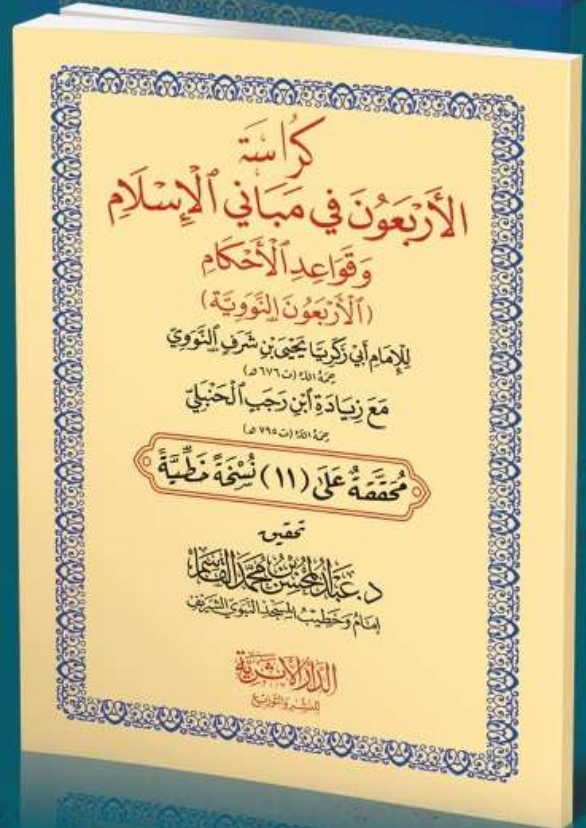 كراسة
الأَرْبَعُونَ فِي مَبَانِي الْإِسْلَامِ
وَقَوَاعِدِ الْأَحْكَامِ
(الْأَرْبَعُونَ النَّوَوِيَّة)
لِلْإِمَامِ أَبِي زَكَرِيَّا يَحْيَى بْنِ شَرَفٍ النَّوَوِيِّ
رحمه الله (ت ٦٧٦ هـ)
مَعَ زِيَادَةِ ابْنِ رَجَبٍ الْحَنْبَلِيِّ
رحمه الله (ت ٧٩٥ هـ)
مُحَقَّقَةٌ عَلَى (١١) نُسْخَةً خَطِّيَّةً
تحقيق
د. عبد المحسن بن محمد القاسم
إمام وخطيب المسجد النبوي الشريف
الدار الأثرية
للنشر والتوزيع